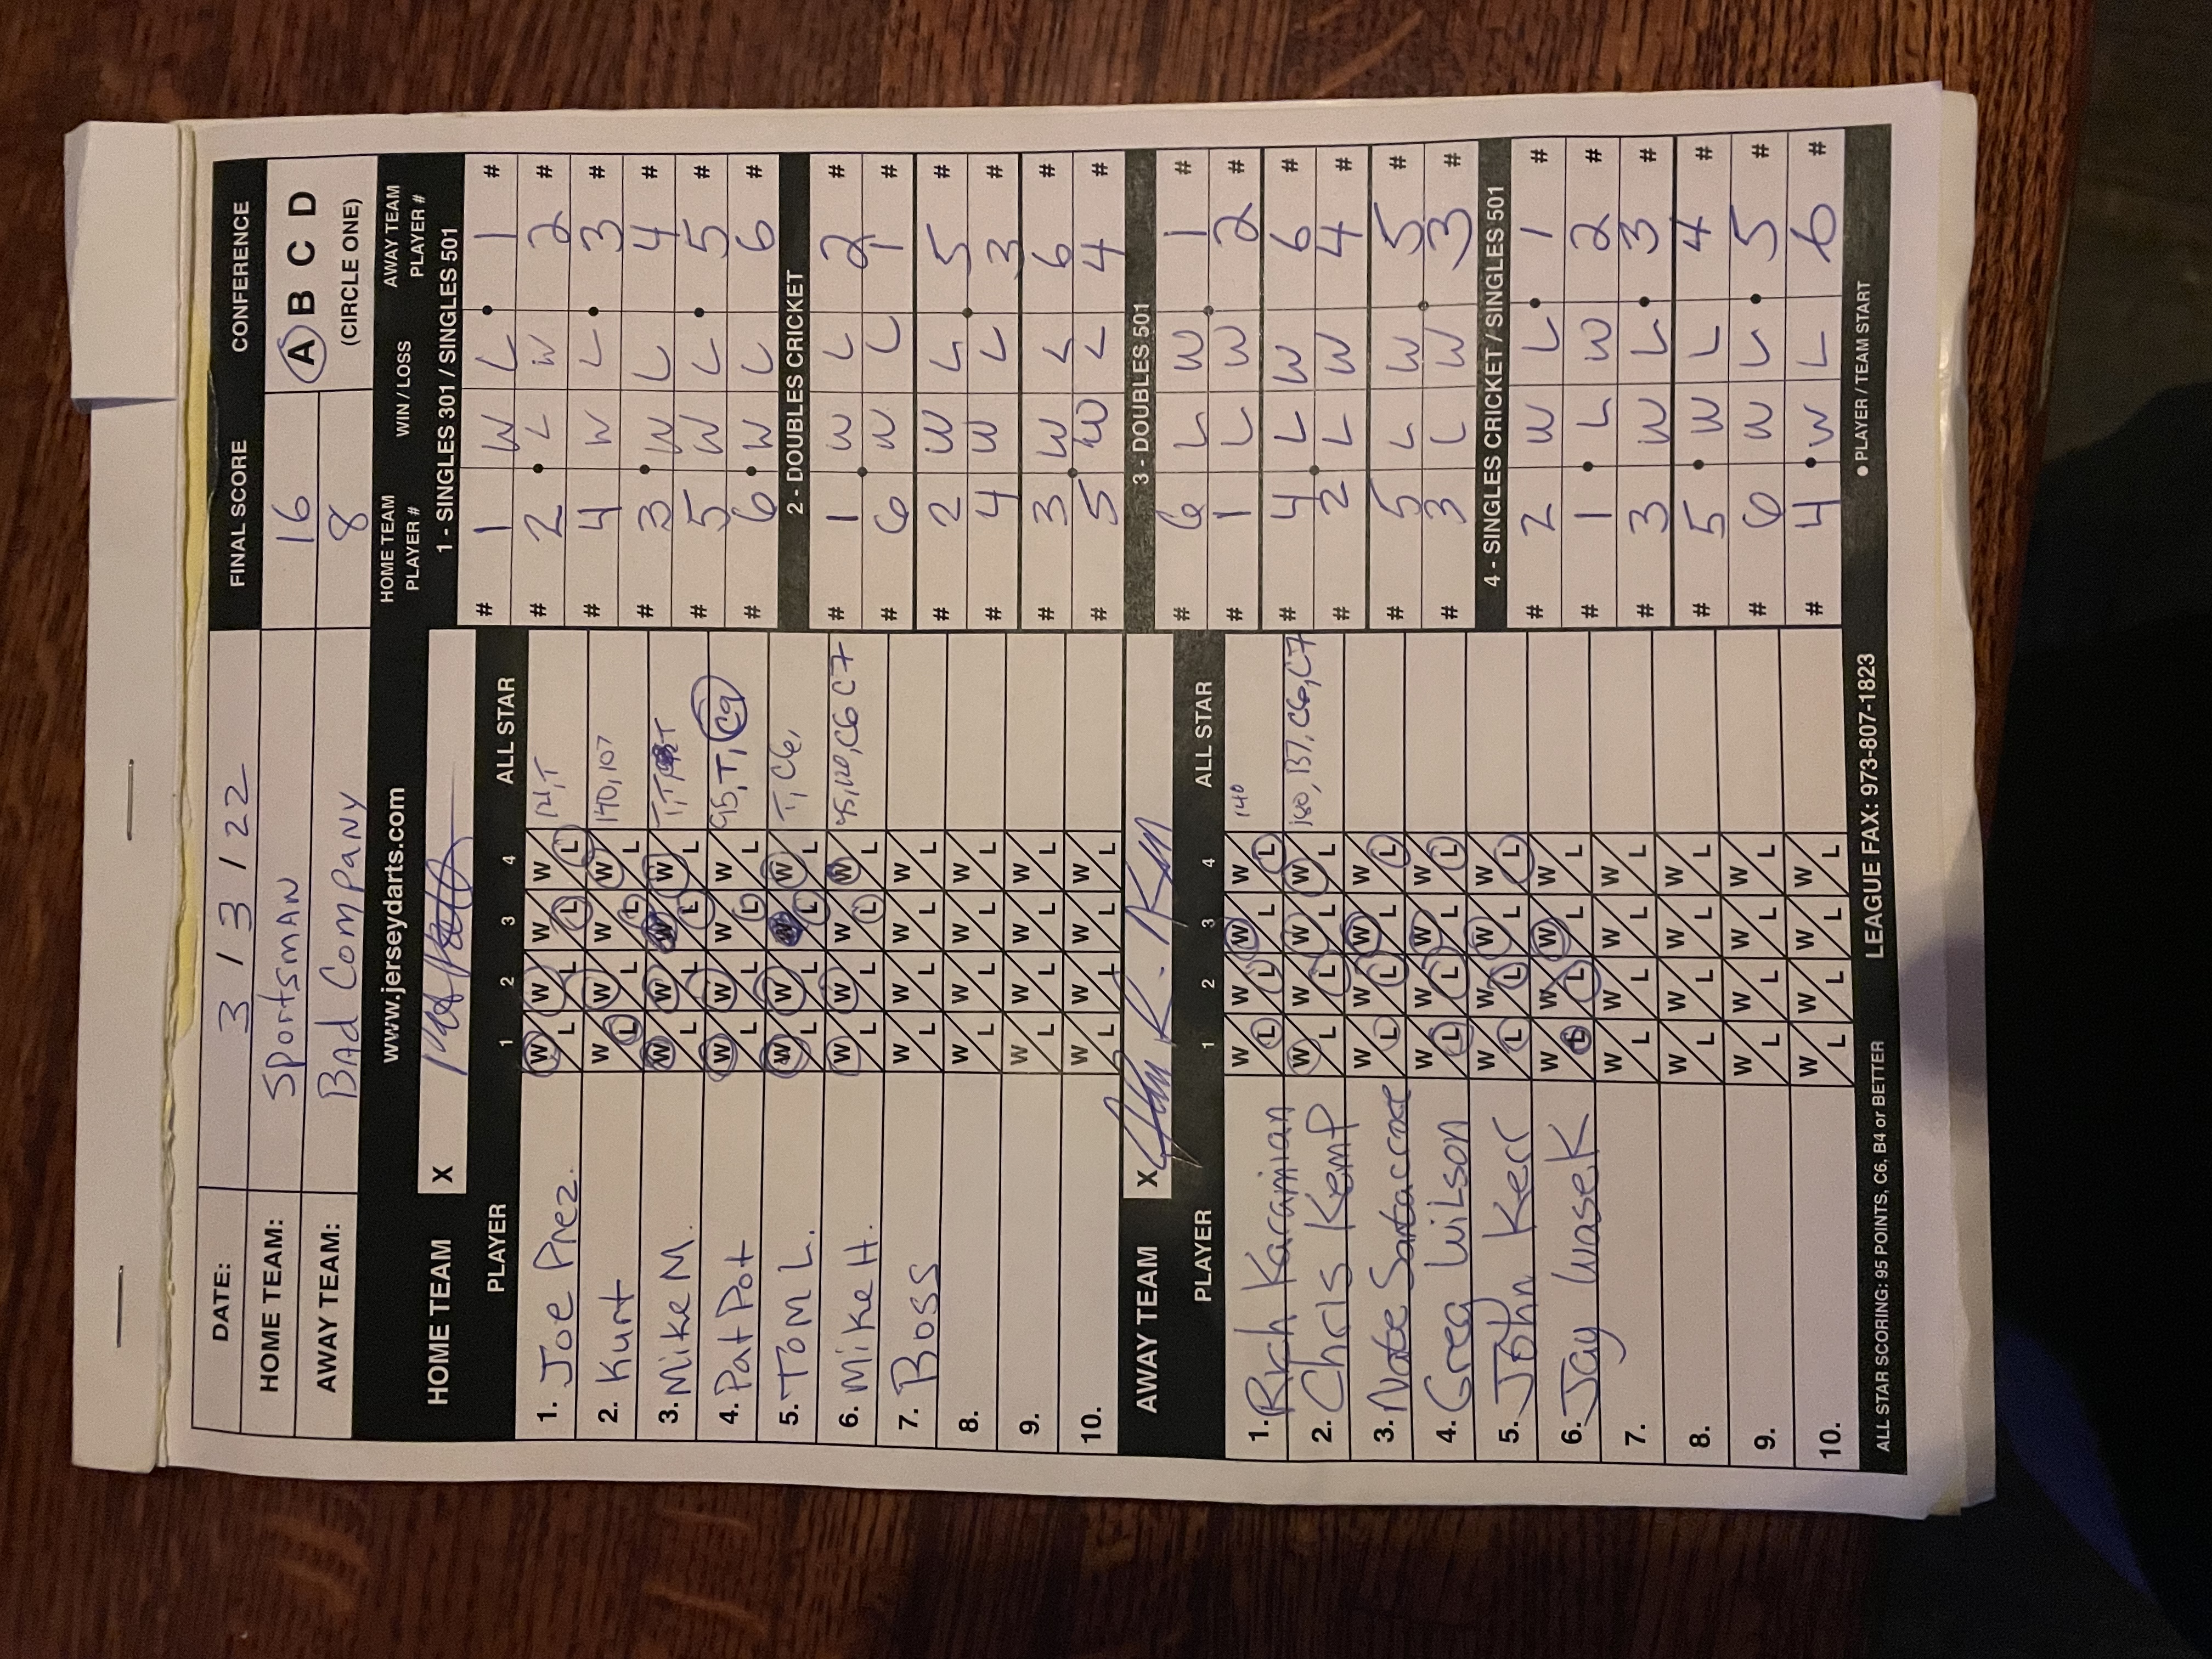 DATE: 3 / 3 / 22 FINAL SCORE CONFERENCE
HOME TEAM: SportsmAN 16 A B C D
AWAY TEAM: BAd ComPANY 8 (CIRCLE ONE)
www.jerseydarts.com
HOME TEAM X
PLAYER 1 2 3 4 ALL STAR
1. Joe Prez. W L W L W L W L 121, T
2. Kurt W L W L W L W L 140, 107
3. Mike M. W L W L W L W L T, T
4. Pat Pot W L W L W L W L 95, T, C9
5. Tom L. W L W L W L W L T, C6,
6. Mike H. W L W L W L W L C6 C7
7. Boss W L W L W L W L
8. W L W L W L W L
9. W L W L W L W L
10. W L W L W L W L
AWAY TEAM X
PLAYER 1 2 3 4 ALL STAR
1. Rich Karamian W L W L W L W L 140
2. Chris Kemp W L W L W L W L 180, 137, C6, C7
3. Nate Santacroce W L W L W L W L
4. Greg Wilson W L W L W L W L
5. John Kerr W L W L W L W L
6. Jay Wasek W L W L W L W L
7. W L W L W L W L
8. W L W L W L W L
9. W L W L W L W L
10. W L W L W L W L
HOME TEAM PLAYER # WIN / LOSS AWAY TEAM PLAYER #
1 - SINGLES 301 / SINGLES 501
# 1 W L 1 #
# 2 L W 2 #
# 4 W L 3 #
# 3 W L 4 #
# 5 W L 5 #
# 6 W L 6 #
2 - DOUBLES CRICKET
# 1 W L 2 #
# 6 W L 1 #
# 2 W L 5 #
# 4 W L 3 #
# 3 W L 6 #
# 5 W L 4 #
3 - DOUBLES 501
# 6 L W 1 #
# 1 L W 2 #
# 4 L W 6 #
# 2 L W 4 #
# 5 L W 5 #
# 3 L W 3 #
4 - SINGLES CRICKET / SINGLES 501
# 2 W L 1 #
# 1 L W 2 #
# 3 W L 3 #
# 5 W L 4 #
# 6 W L 5 #
# 4 W L 6 #
● PLAYER / TEAM START
ALL STAR SCORING: 95 POINTS, C6, B4 or BETTER LEAGUE FAX: 973-807-1823